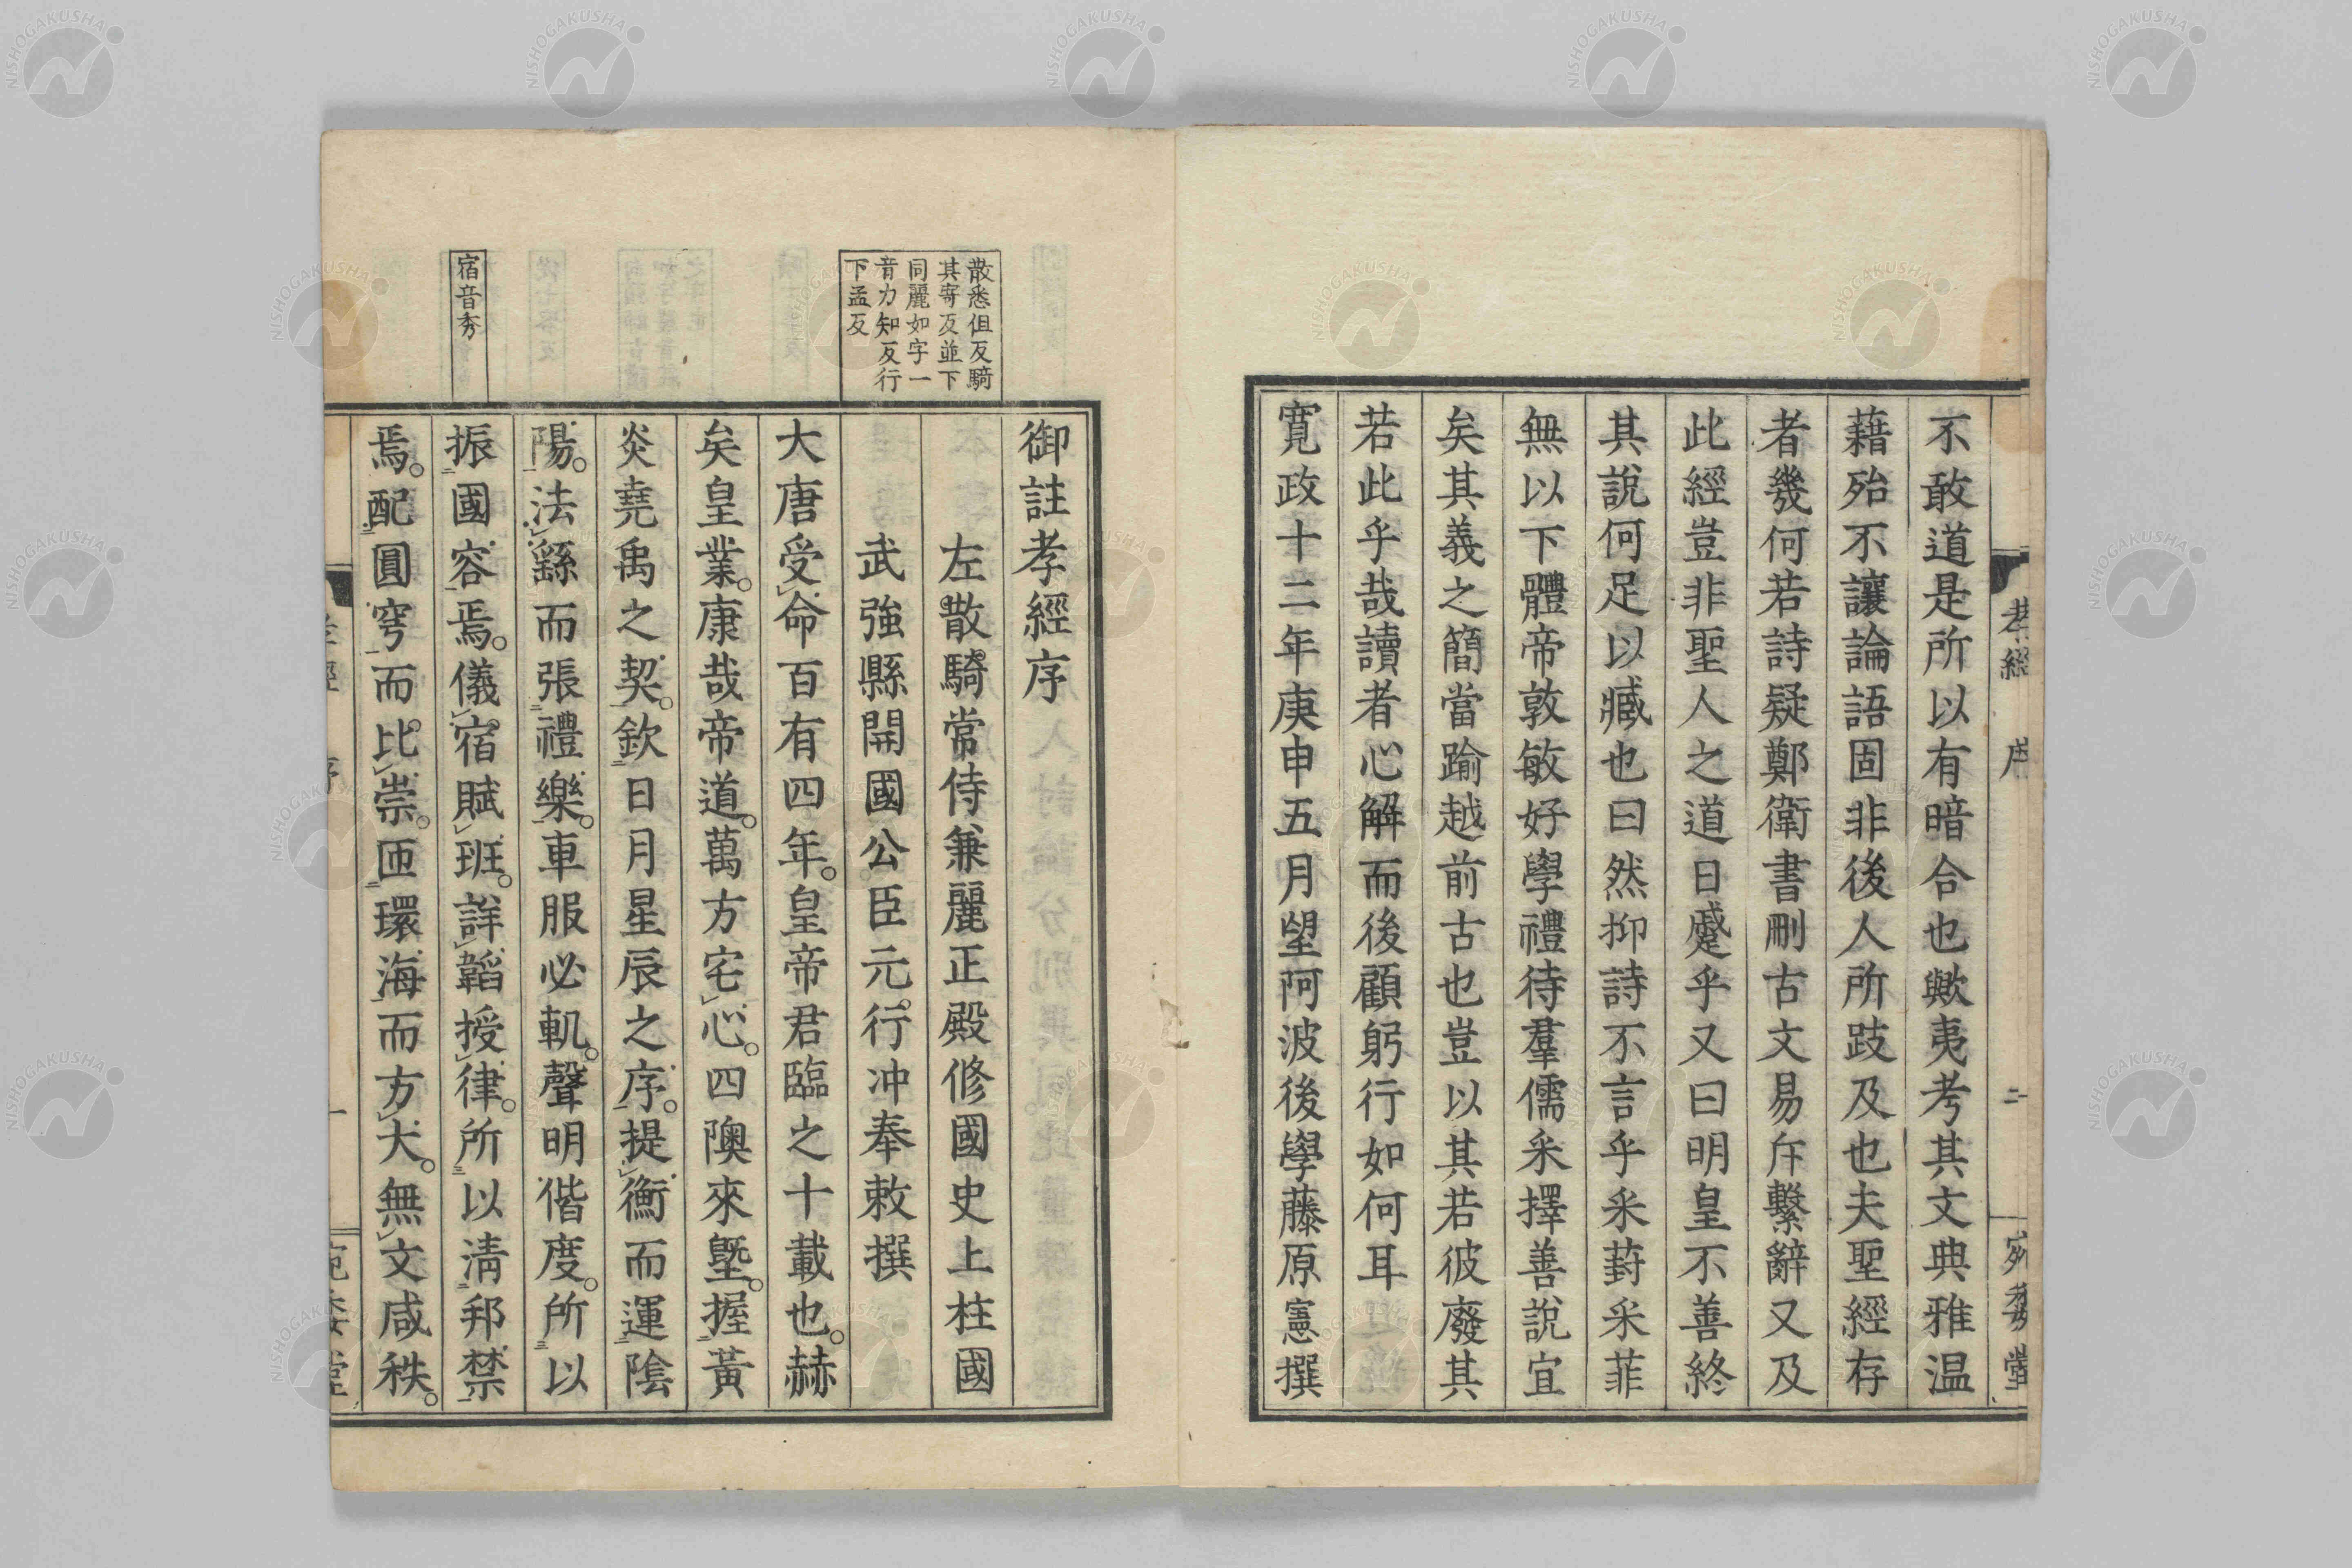 不敢道是所以有暗合也歟夷考其文典雅温
藉殆不讓論語固非後人所跂及也夫聖經存
者幾何若詩疑鄭衛書刪古文易斥繫辭又及
此經豈非聖人之道日蹙乎又曰明皇不善終
其說何足以臧也曰然抑詩不言乎采葑采菲
無以下體帝敦敏好學禮待羣儒采擇善說宜
矣其義之簡當踰越前古也豈以其若彼廢其
若此乎哉讀者心解而後顧躬行如何耳
寛政十二年庚申五月望阿波後學藤原憲撰
孝經 序 二 宛委堂
散悉伹反騎
其寄反並下
同麗如字一
音力知反行
下孟反
宿音秀
御註孝經序
左散騎常侍兼麗正殿修國史上柱國
武強縣開國公臣元行冲奉敕撰
大唐受命百有四年。皇帝君臨之十載也。赫
矣皇業。康哉帝道。萬方宅心。四隩來曁。握黃
炎堯禹之契。欽日月星辰之序。提衡而運陰
陽。法繇而張禮樂。車服必軌。聲明偕度。所以
振國容焉。儀宿賦班。詳韜授律。所以淸邦禁
焉。配圓穹而比崇。匝環海而方大。無文咸秩。